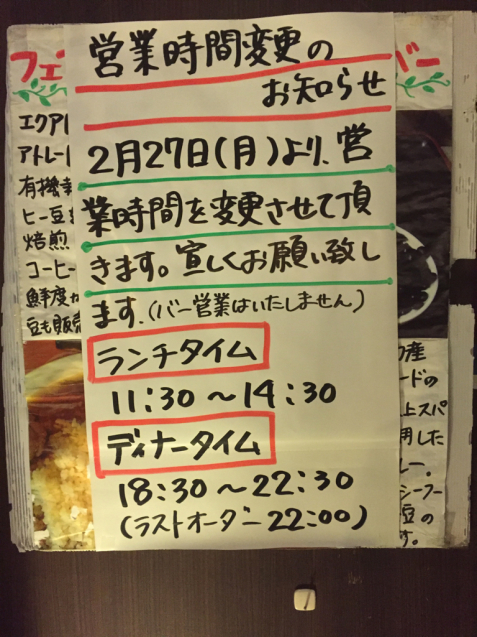 営業時間変更の
お知らせ
2月27日(月)より、営
業時間を変更させて頂
きます。宜しくお願い致し
ます.(バー営業はいたしません)
ランチタイム
11:30〜14:30
ディナータイム
18:30〜22:30
(ラストオーダー22:00)
フェ
バー
エクアド
アトレー
有機
ヒー豆
焙煎
コーヒー
鮮度が
豆も販売
産
ードの
上スパ
用した
レー。
シーフー
豆の
す。